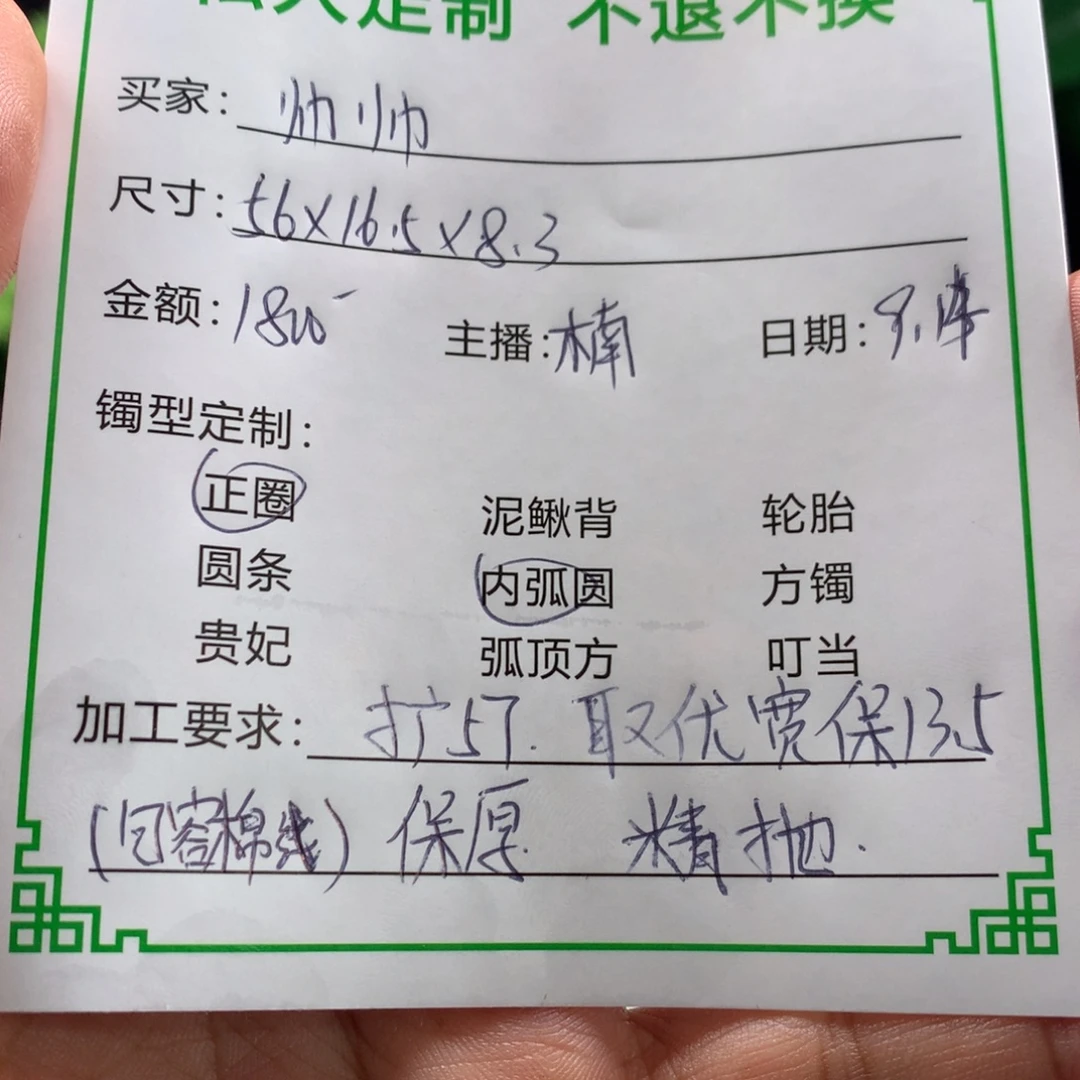 私人定制 不退不换
买家: 帅帅
尺寸: 56×16.5×8.3
金额: 1800 主播: 楠 日期:
镯型定制:
正圈 泥鳅背 轮胎
圆条 内弧圆 方镯
贵妃 弧顶方 叮当
加工要求: 扩57. 取优宽保13.5
(包容棉线) 保厚 精抛.